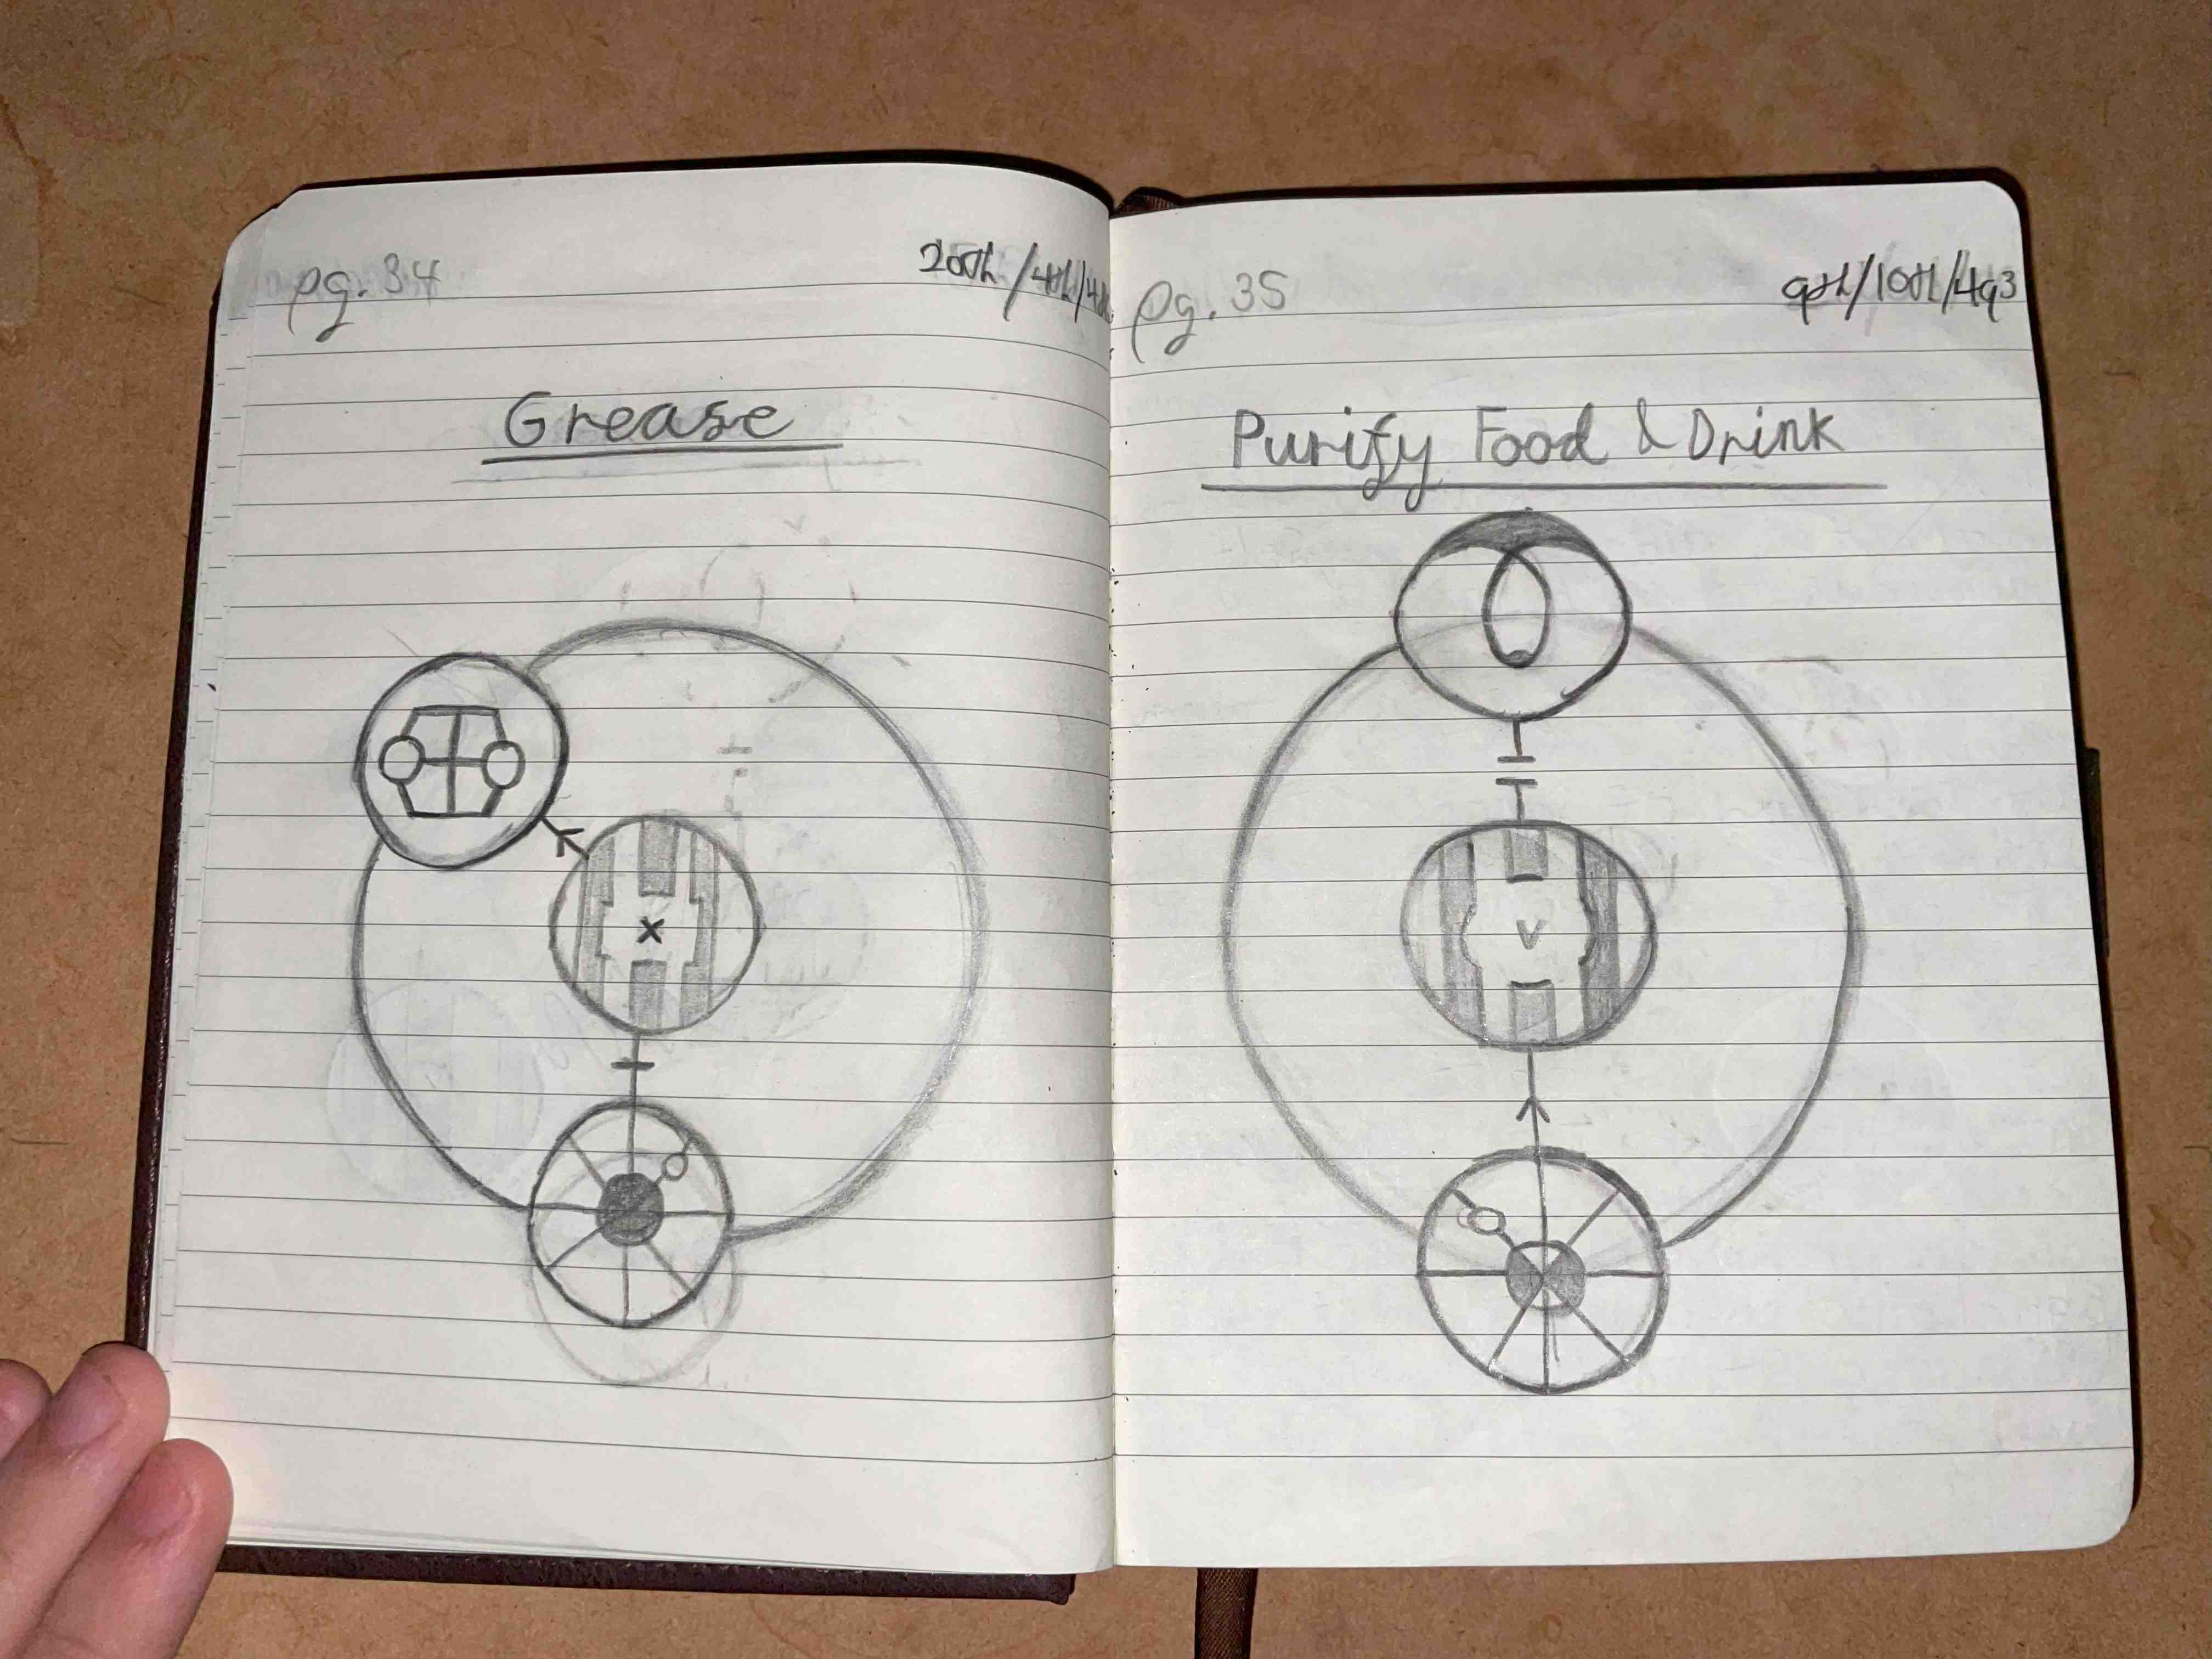 pg. 34
20th/4th/4
Grease
x
pg. 35
9th/10th/493
Purify Food & Drink
v